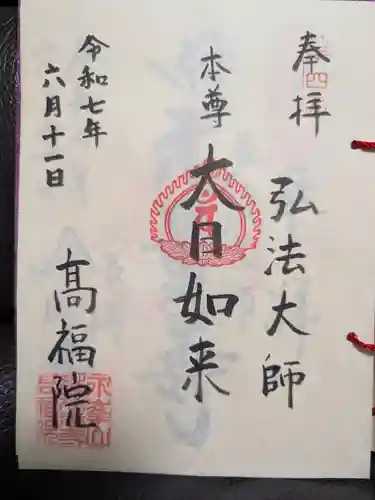 奉拝
弘法大師
本尊
大日如来
令和七年
六月十一日
高福院